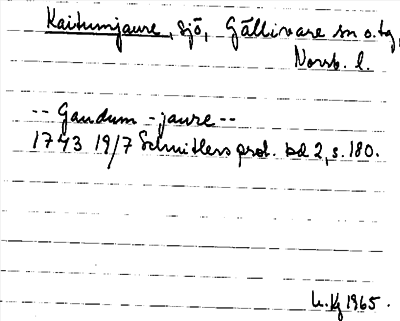 Kaitumjaure, sjö, Gällivare sn o. tg,
Norrb. l.
-- Gaudum - jaure --
1743 19/7 Schnitlers prot. bd 2, s. 180.
1965.